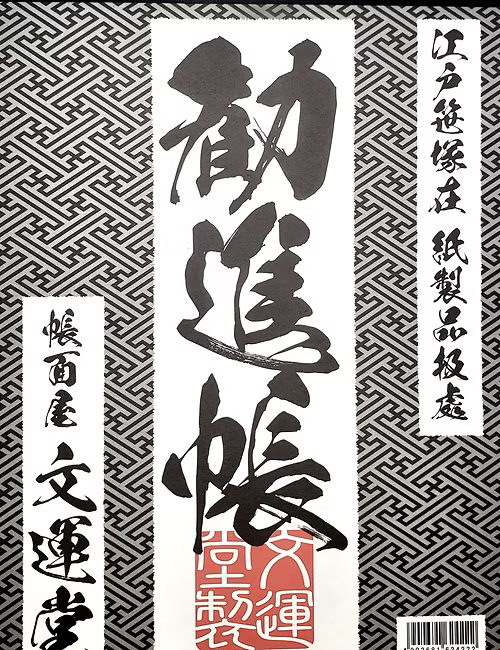 江戸笹塚在 紙製品扱處
勧進帳
文運
堂製
帳面屋 文運堂